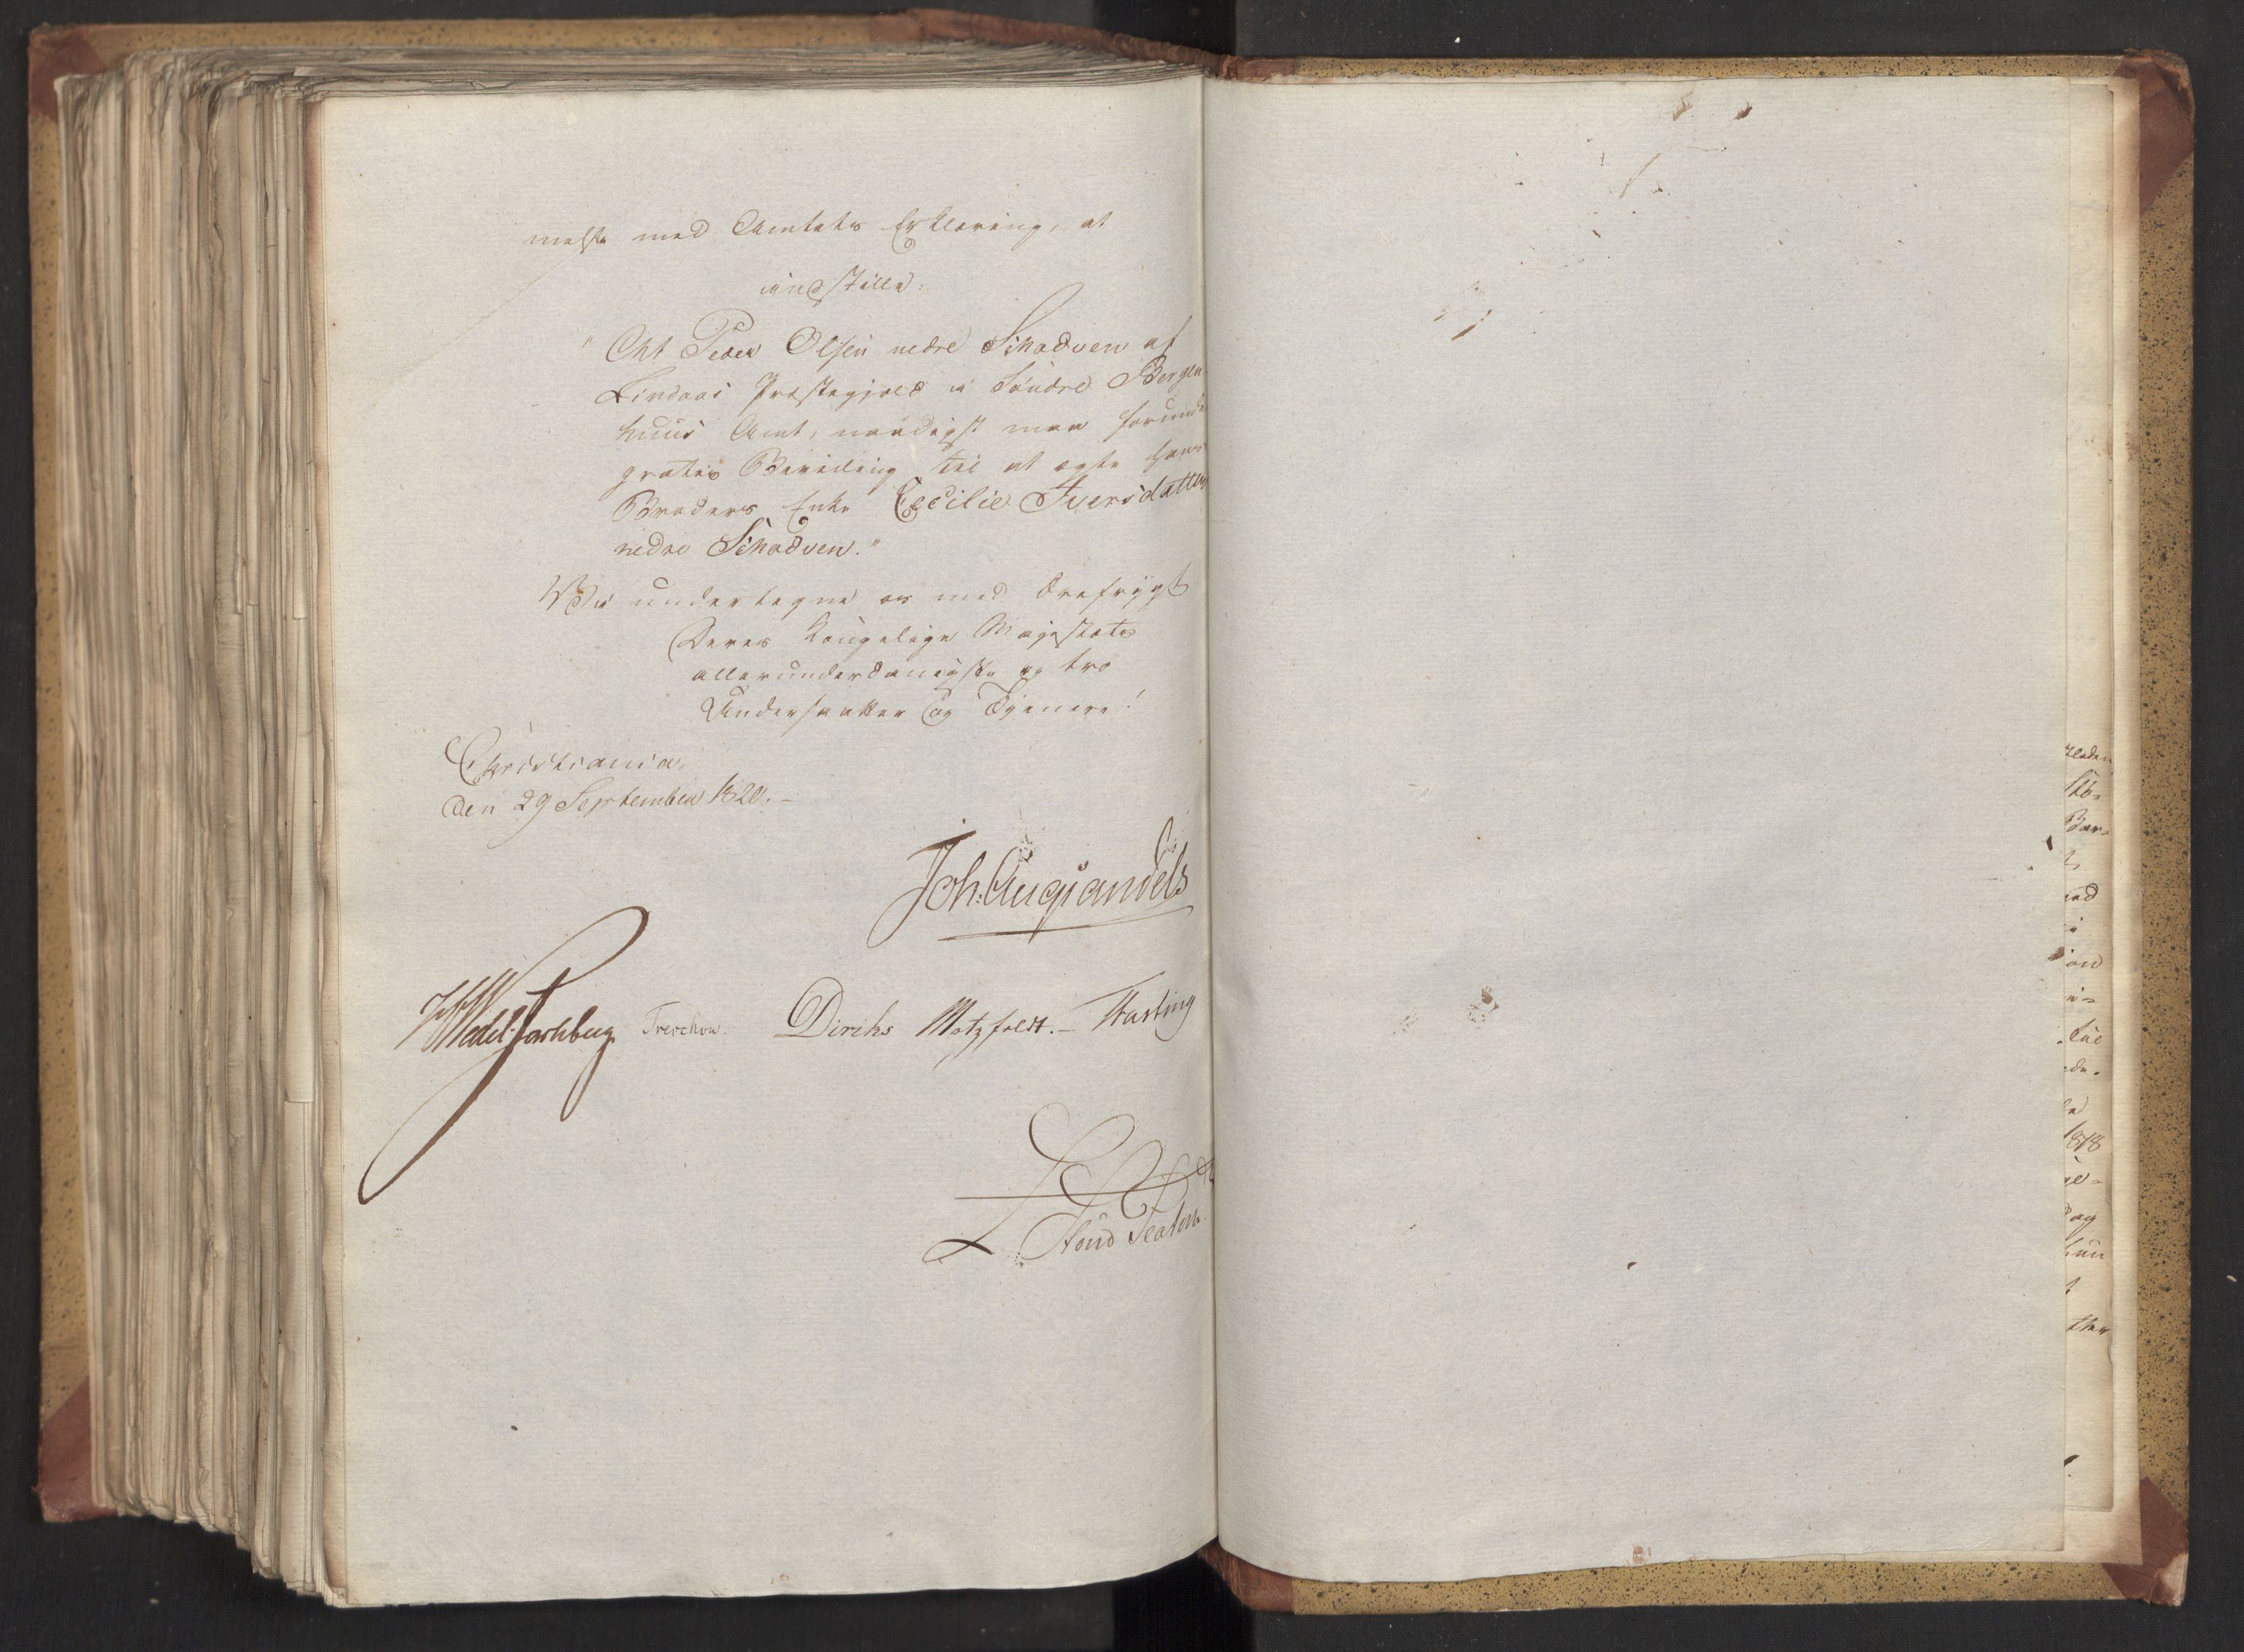 melse med Amtets Erklæring, at
indstille:
"At Peder Olsen nedre Schodven af
Lindaas Præstegjæld i Søndre Bergen
huus Amt, naadigst maa forunde
gratis Bevilling til at ægte hans
Broders Enke Cecilie Iversdatter
nedre Schodven."
Vi undertegne os med Ærefrygt
Deres Kongelige Majestæts
allerunderdanigste og tro
Undersaatter og Tjenere!
Christiania,
den 29 September 1820.-
Joh: Aug: Sandels
HWedel Jarlsberg Treschow. Diriks Motzfeldt.- Fasting
zleden
Stö=
Bar=
ed
i
til
1818
dag
hun
tter